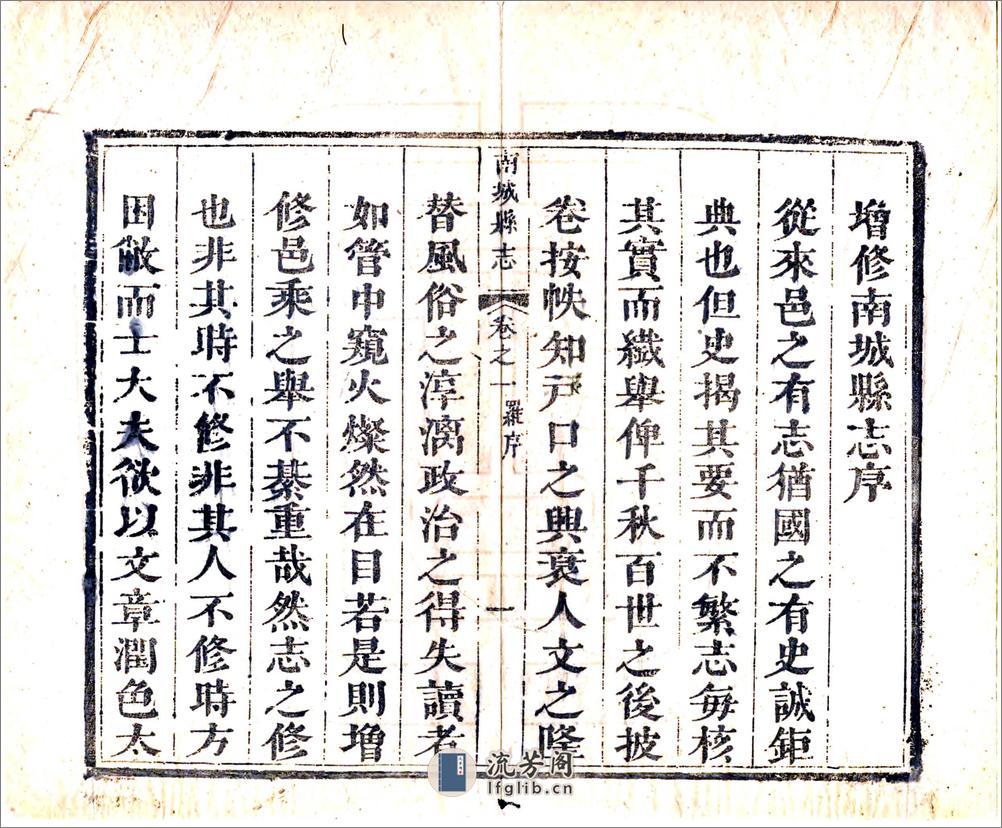 增修南城縣志序
從來邑之有志猶國之有史誠鉅
典也但史揭其要而不繁志每核
其實而纎舉俾千秋百世之後披
卷按帙知戸口之興衰人文之隆
南城縣志 卷之一 羅序 一
替風俗之淳漓政治之得失讀者
如管中窺火燦然在目若是則增
修邑乘之舉不綦重哉然志之修
也非其時不修非其人不修時方
困敝而士大夫欲以文章潤色太
流芳阁
lfglib.cn